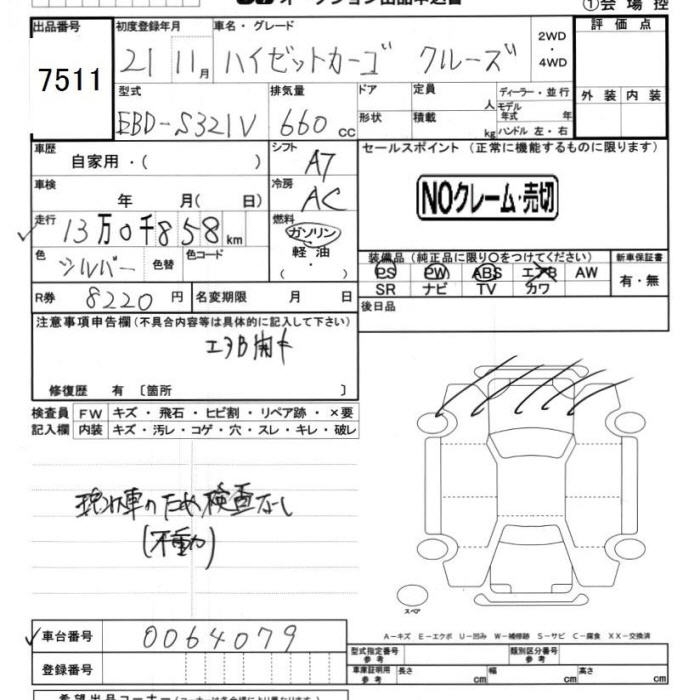 オークション出品申込書
①会場控
出品番号 初度登録年月 車名・グレード 評価点
7511 21 11月 ハイゼットカーゴ クルーズ 2WD・4WD
型式 排気量 ドア 定員 人 ディーラー・並行 外装 内装
EBD-S321V 660cc 形状 積載 kg モデル年式 年 ハンドル 左・右
車歴 シフト セールスポイント (正常に機能するものに限ります)
自家用・( ) AT
車検 冷房
年 月( 日) AC NOクレーム・売切
走行 燃料
13万0千858km ガソリン
軽油
・( )
色 シルバー 色替 色コード
装備品 (純正品に限り○をつけてください) 新車保証書
PS PW ABS エアB AW 有・無
SR ナビ TV カワ
R券 8220円 名変期限 月 日 後日品
注意事項申告欄 (不具合内容等は具体的に記入して下さい)
エアB開き
修復歴 有 〔箇所 〕
検査員 FW キズ・飛石・ヒビ割・リペア跡・×要
記入欄 内装 キズ・汚レ・コゲ・穴・スレ・キレ・破レ
現状車のため検査なし
(不動)
スペア
A-キズ E-エクボ U-凹み W-補修跡 S-サビ C-腐食 XX-交換済
車台番号 0064079
型式指定番号 参考 類別区分番号 参考
登録番号 車庫証明用 参考 長さ cm 幅 cm 高さ cm
希望出品コーナー